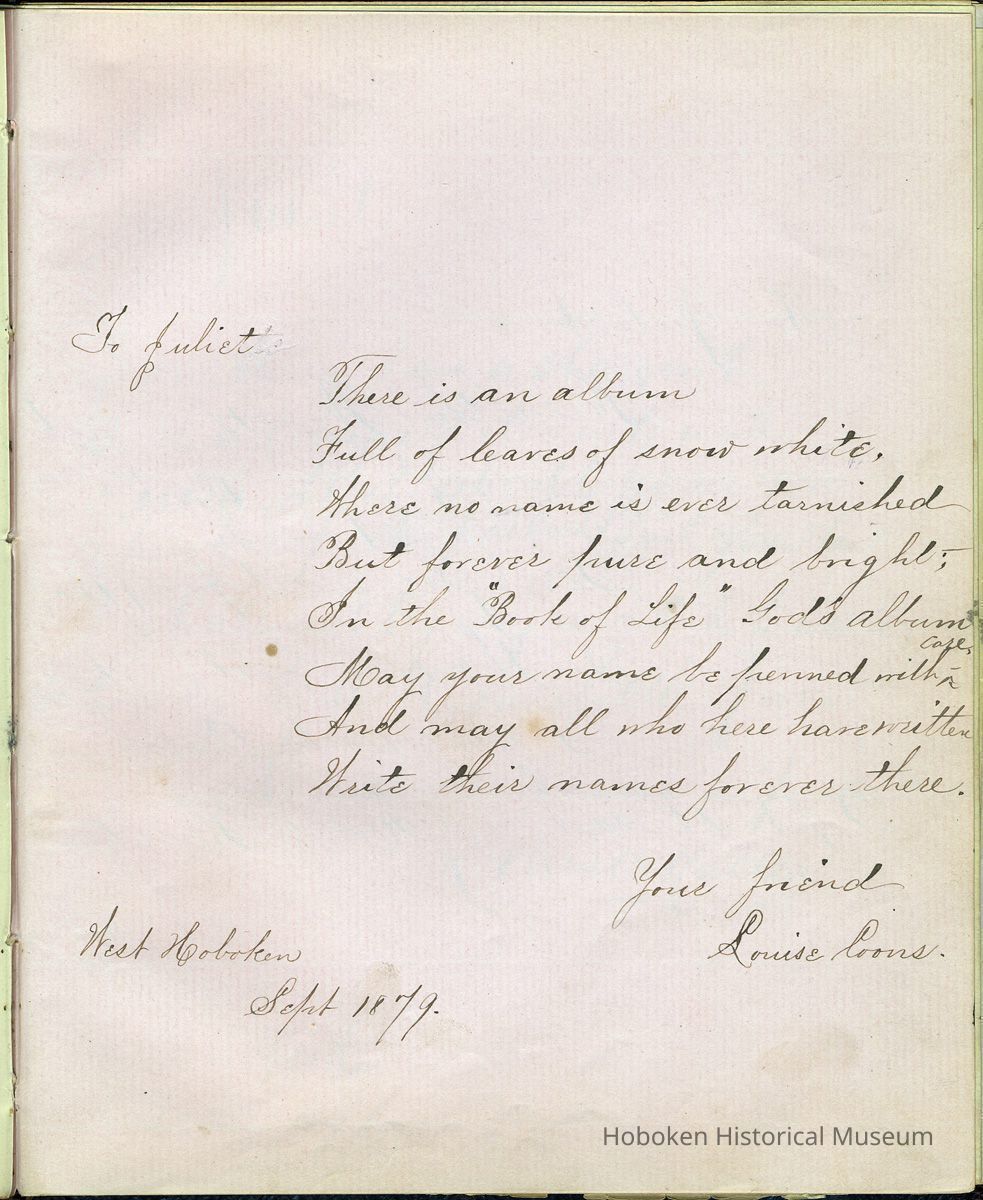 To Juliet
There is an album
Full of leaves of snow white,
Where no name is ever tarnished
But forever pure and bright;
In the "Book of Life" God's album
May your name be penned with care,
And may all who here have written
Write their names forever there.
Your friend
Louise Coons.
West Hoboken
Sept 1879.
Hoboken Historical Museum